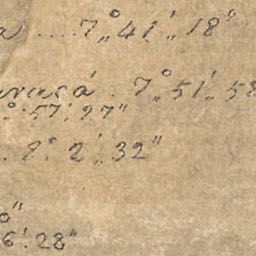 a .... 7°„ 41'„ 18"
7°„ 51'„ 58
°. 57'. 27"
.. 8°. 2'„ 32"
0"
6'. 28"